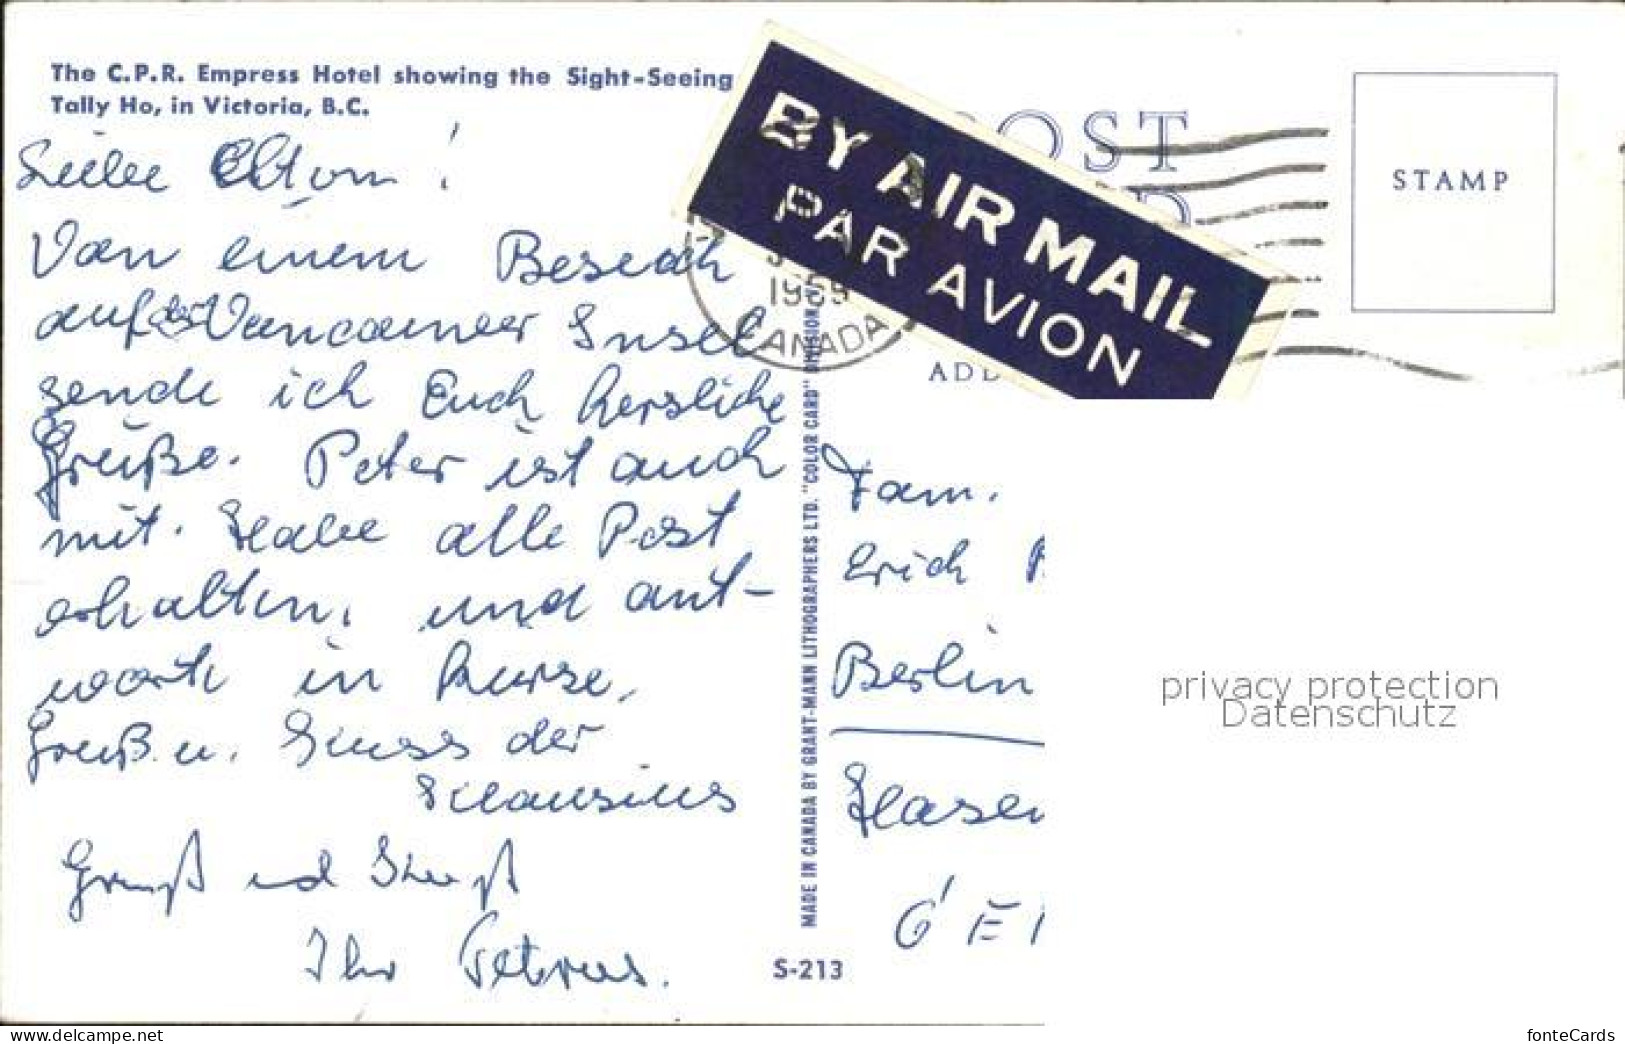 The C.P.R. Empress Hotel showing the Sight-Seeing
Tally Ho, in Victoria, B.C.
Eltern!
Von einem Besuch
auf der Vancouver Insel
sende ich Euch herzliche
Grüße. Peter ist auch
mit. Habe alle Post
erhalten, und ant-
worte in Kürze.
Gruß u. Kuss der
Gruß und Kuß
Ihr Petrus.
BY AIR MAIL
PAR AVION
POST
STAMP
1969
CANADA
ADD
MADE IN CANADA BY GRANT-MANN LITHOGRAPHERS LTD. "COLOR CARD" DIVISION
Fam.
Erich
Berlin
Hasen
GE
S-213
privacy protection
Datenschutz
www.delcampe.net
fonteCards